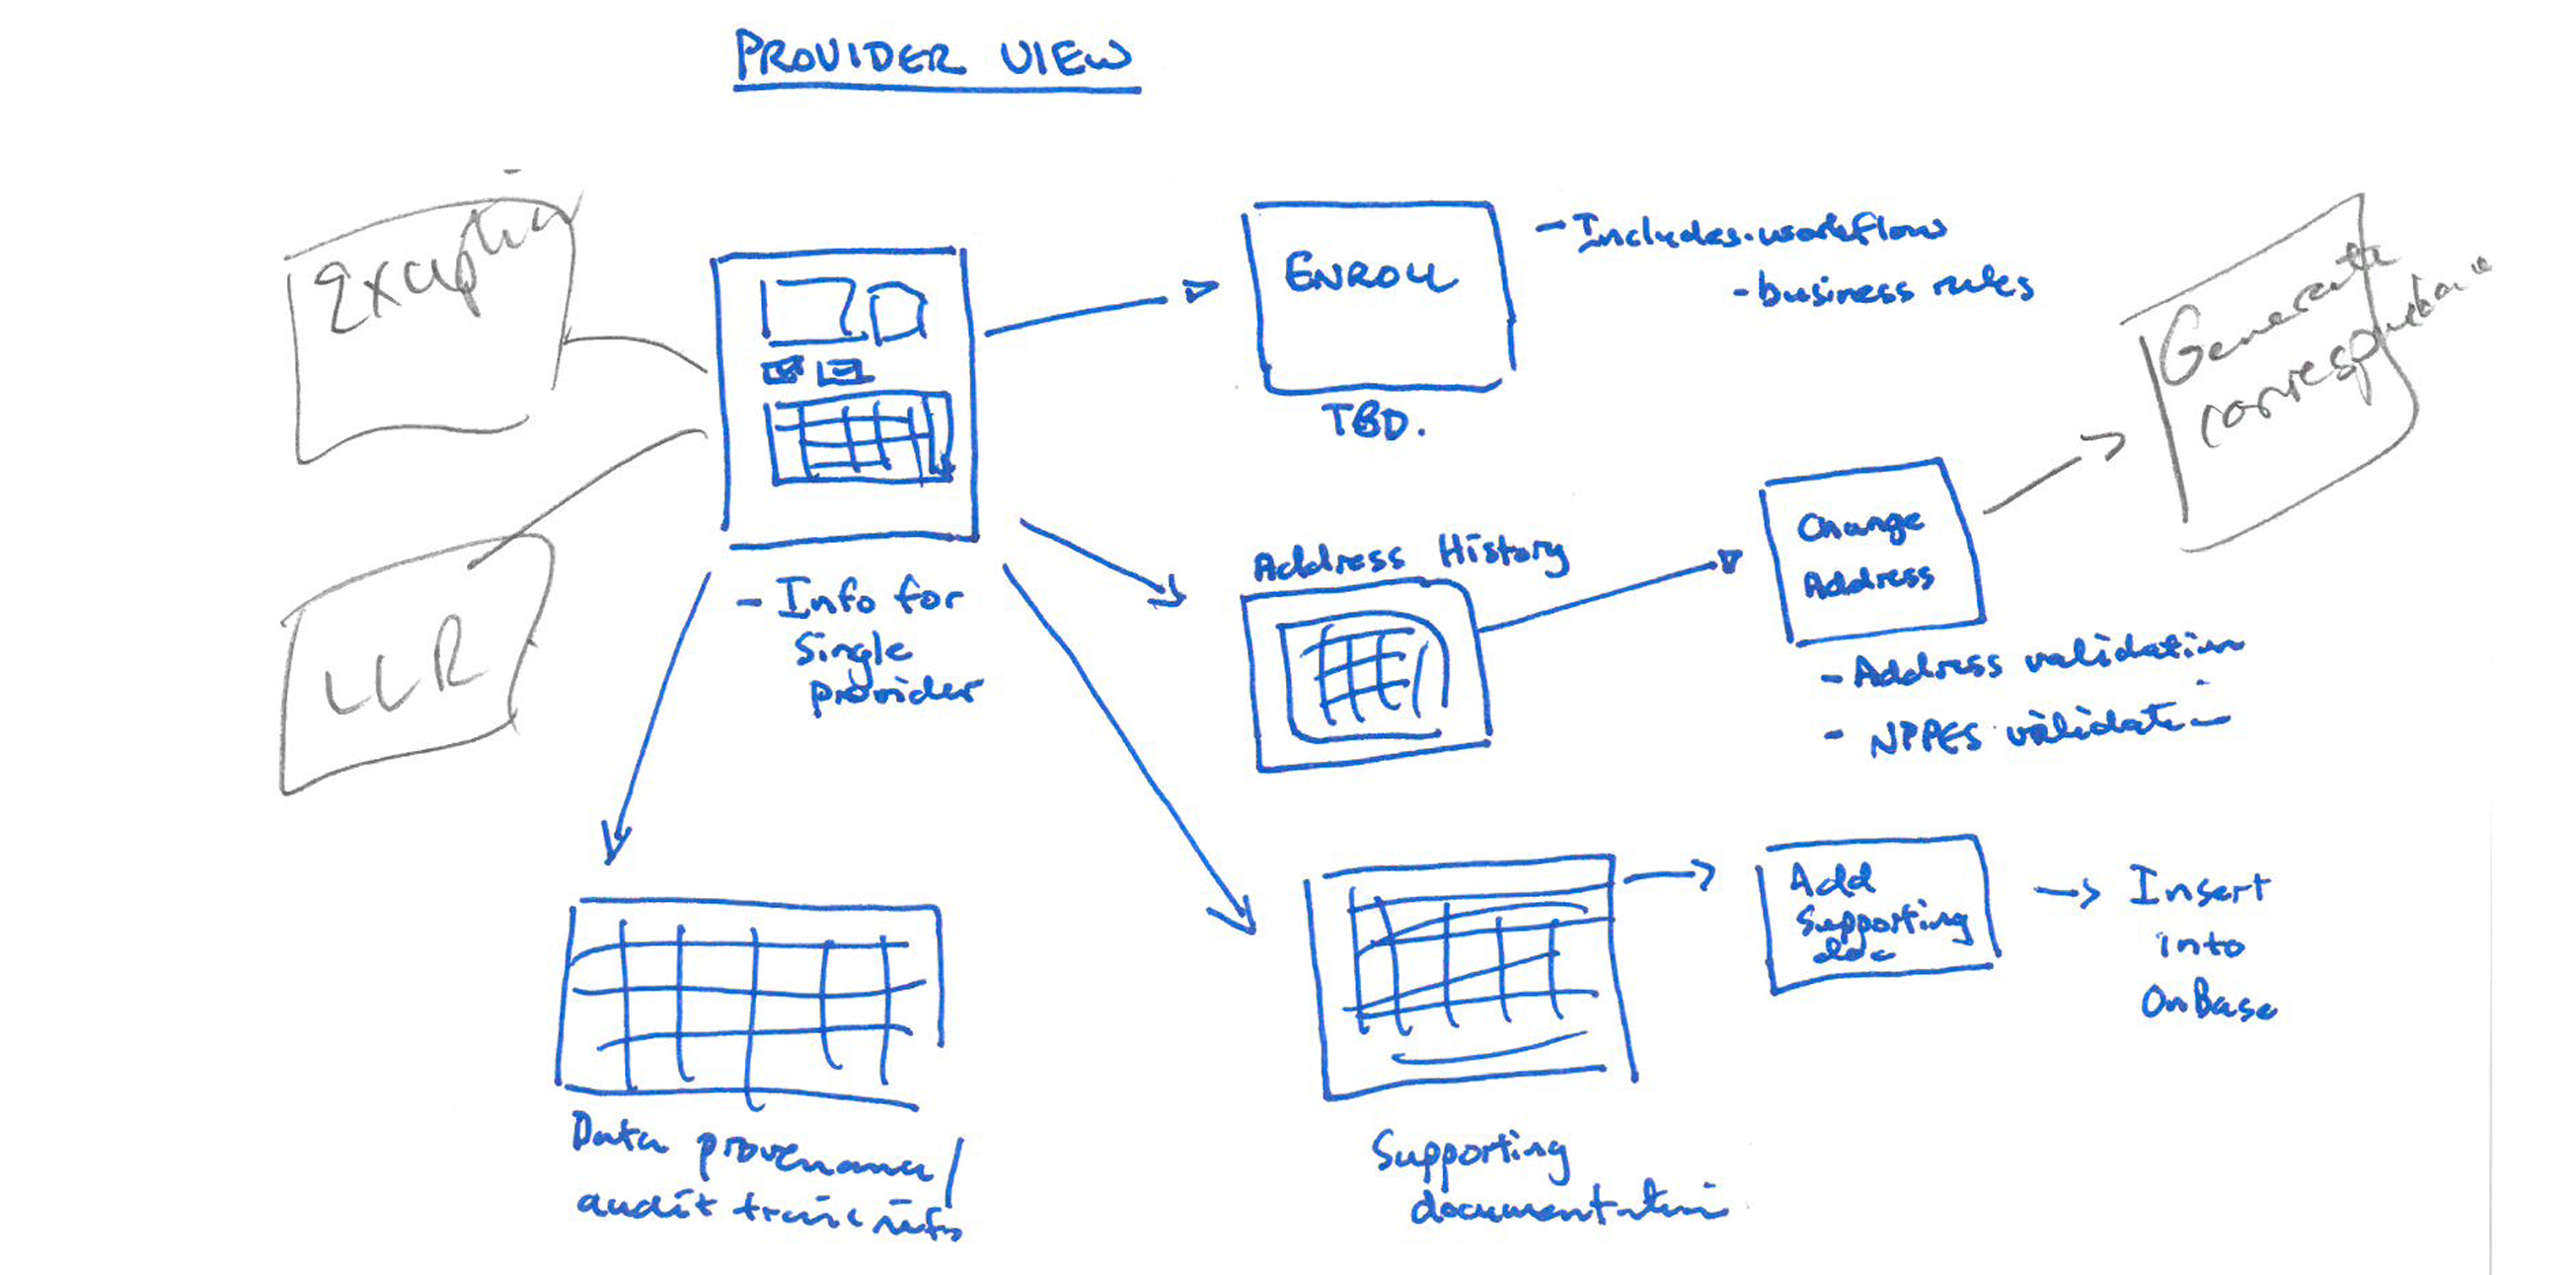 PROVIDER VIEW
Exception
LLR
- Info for
single
provider
ENROLL
TBD.
- Includes workflow
- business rules
Generate
correspondence
Address History
Change
Address
- Address validation
- NPPES validation
Data provenance/
audit trail info
Supporting
documentation
Add
Supporting
doc
Insert
into
OnBase